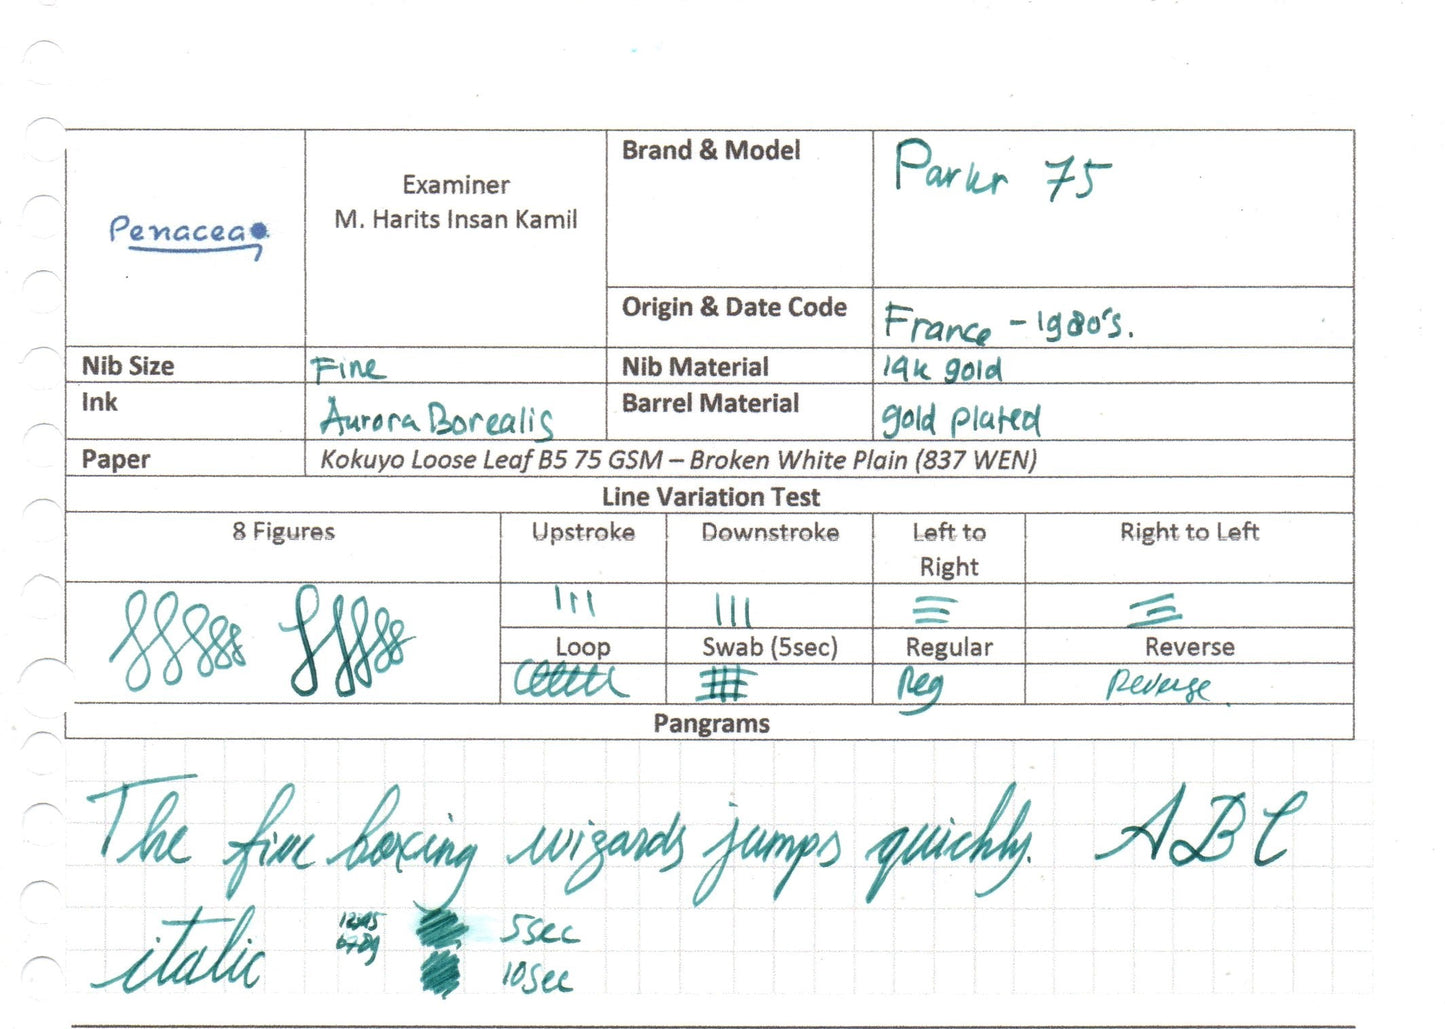 Penacea
Examiner
M. Harits Insan Kamil
Brand & Model
Parker 75
Origin & Date Code
France - 1980's.
Nib Size
Fine
Nib Material
14k gold
Ink
Aurora Borealis
Barrel Material
gold plated
Paper
Kokuyo Loose Leaf B5 75 GSM – Broken White Plain (837 WEN)
Line Variation Test
8 Figures
Upstroke
Downstroke
Left to
Right
Right to Left
Loop
Swab (5sec)
Regular
Reverse
Reg
Reverse
Pangrams
The five boxing wizards jumps quickly. ABC
italic
12345
6789
5sec
10sec